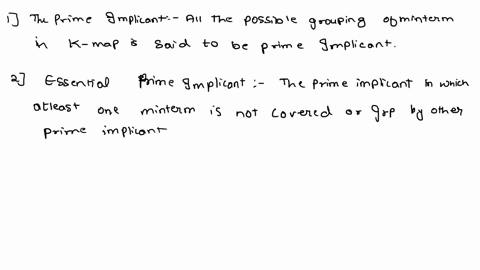 1] The Prime Implicant:- All the possible grouping of minterm
in K-map is said to be prime Implicant.
2] Essential Prime Implicant :- The prime implicant in which
atleast one minterm is not covered or grp by other
prime implicant